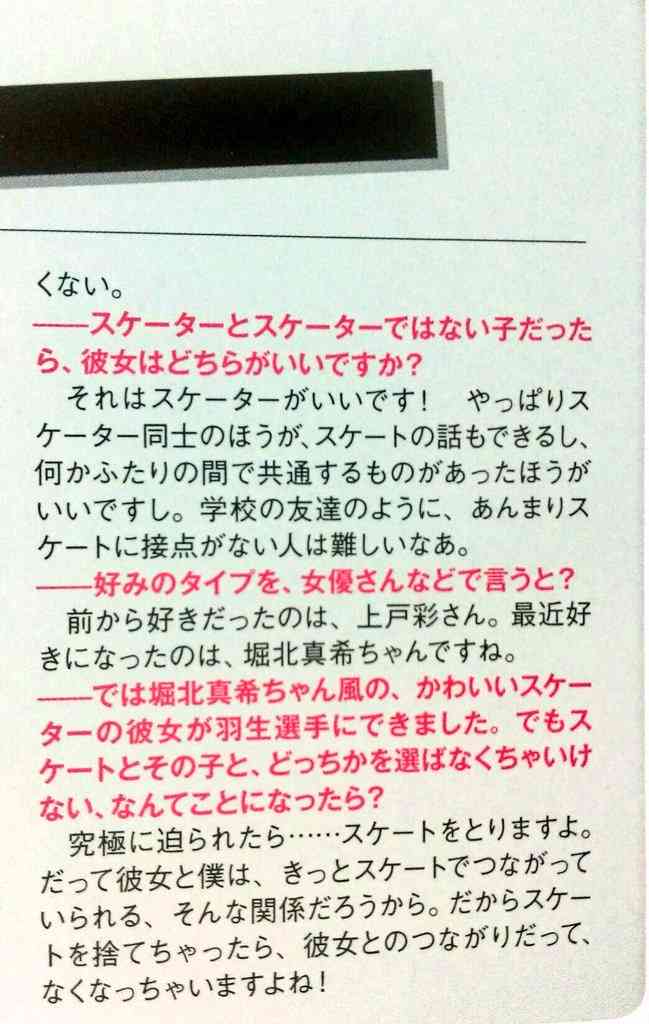 くない。
――スケーターとスケーターではない子だった
ら、彼女はどちらがいいですか？
　それはスケーターがいいです！　やっぱりス
ケーター同士のほうが、スケートの話もできるし、
何かふたりの間で共通するものがあったほうが
いいですし。学校の友達のように、あんまりス
ケートに接点がない人は難しいなあ。
――好みのタイプを、女優さんなどで言うと？
　前から好きだったのは、上戸彩さん。最近好
きになったのは、堀北真希ちゃんですね。
――では堀北真希ちゃん風の、かわいいスケー
ターの彼女が羽生選手にできました。でもス
ケートとその子と、どっちかを選ばなくちゃいけ
ない、なんてことになったら？
　究極に迫られたら……スケートをとりますよ。
だって彼女と僕は、きっとスケートでつながって
いられる、そんな関係だろうから。だからスケー
トを捨てちゃったら、彼女とのつながりだって、
なくなっちゃいますよね！